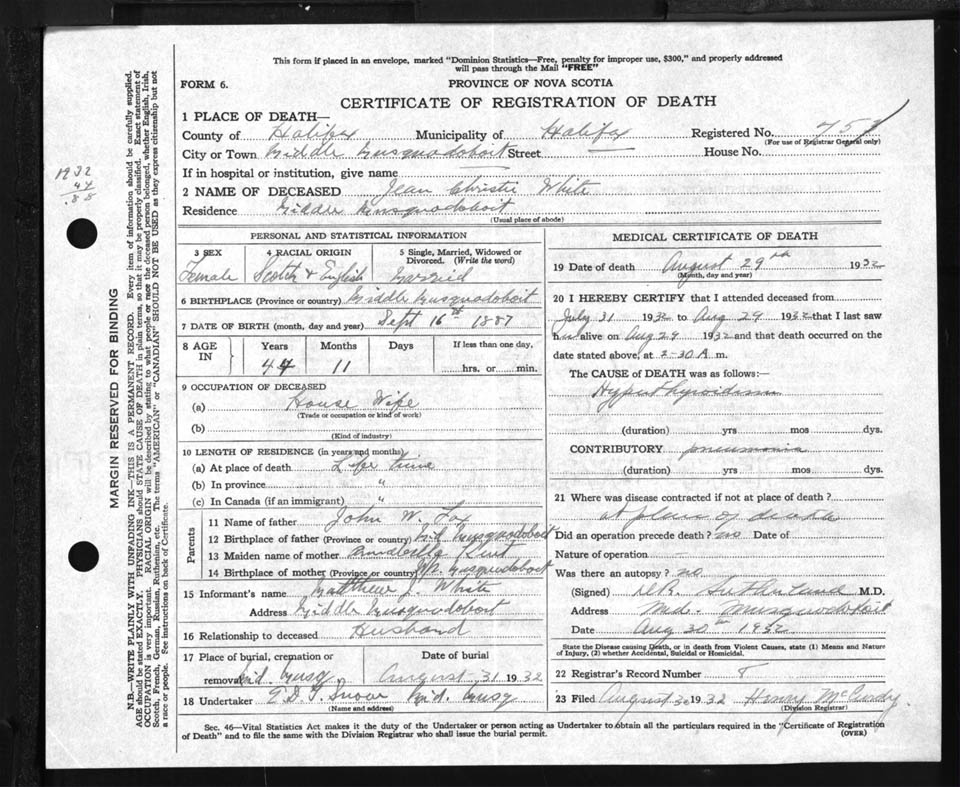 This form if placed in an envelope, marked "Dominion Statistics—Free, penalty for improper use, $300," and properly addressed
will pass through the Mail "FREE"
FORM 6.
PROVINCE OF NOVA SCOTIA
CERTIFICATE OF REGISTRATION OF DEATH
1 PLACE OF DEATH—
County of Halifax Municipality of Halifax Registered No. 757
(For use of Registrar General only)
City or Town Middle Musquodoboit Street House No.
If in hospital or institution, give name
2 NAME OF DECEASED Jean Christie White
Residence Middle Musquodoboit
(Usual place of abode)
PERSONAL AND STATISTICAL INFORMATION
3 SEX 4 RACIAL ORIGIN 5 Single, Married, Widowed or Divorced. (Write the word)
Female Scotch & English Married
6 BIRTHPLACE (Province or country) Middle Musquodoboit
7 DATE OF BIRTH (month, day and year) Sept 16th 1887
8 AGE IN Years Months Days If less than one day,
44 11 hrs. or min.
9 OCCUPATION OF DECEASED
(a) House Wife
(Trade or occupation or kind of work)
(b)
(Kind of industry)
10 LENGTH OF RESIDENCE (in years and months)
(a) At place of death Life time
(b) In province "
(c) In Canada (if an immigrant) "
Parents
11 Name of father John W. Fox
12 Birthplace of father (Province or country) Mid Musquodoboit
13 Maiden name of mother Kent
14 Birthplace of mother (Province or country) Musquodoboit
15 Informant's name Matthew J. White
Address Middle Musquodoboit
16 Relationship to deceased Husband
17 Place of burial, cremation or removal Mid. Musq Date of burial August 31 1932
18 Undertaker Mid. Musq
(Name and address)
MEDICAL CERTIFICATE OF DEATH
19 Date of death August 29th 1932
(Month, day and year)
20 I HEREBY CERTIFY that I attended deceased from
July 31 1932 to Aug 29 1932 that I last saw
her alive on Aug 29 1932 and that death occurred on the
date stated above, at 2-30 A m.
The CAUSE of DEATH was as follows:—
Hyperthyroidism
(duration) yrs mos dys.
CONTRIBUTORY pneumonia
(duration) yrs mos dys.
21 Where was disease contracted if not at place of death?
at place of death
Did an operation precede death? no Date of
Nature of operation
Was there an autopsy? no
(Signed) Sutherland M.D.
Address Mid. Musquodoboit
Date Aug 30th 1932
State the Disease causing Death, or in death from Violent Causes, state (1) Means and Nature
of Injury, (2) whether Accidental, Suicidal or Homicidal.
22 Registrar's Record Number 8
23 Filed August 30 1932 Henry McCurdy
(Division Registrar)
Sec. 46—Vital Statistics Act makes it the duty of the Undertaker or person acting as Undertaker to obtain all the particulars required in the "Certificate of Registration
of Death" and to file the same with the Division Registrar who shall issue the burial permit.
(OVER)
1932
44
.88
MARGIN RESERVED FOR BINDING
N.B.—WRITE PLAINLY WITH UNFADING INK—THIS IS A PERMANENT RECORD. Every item of information should be carefully supplied.
AGE should be stated EXACTLY. PHYSICIANS should STATE CAUSE OF DEATH in plain terms, so that it may be properly classified. Exact statement of
OCCUPATION is very important. RACIAL ORIGIN will be described by stating to what people or race the deceased person belonged, whether English, Irish,
Scotch, French, German, Russian, Ruthenian, etc. The terms "AMERICAN" or "CANADIAN" SHOULD NOT BE USED as they express citizenship but not
a race or people. See instructions on back of Certificate.